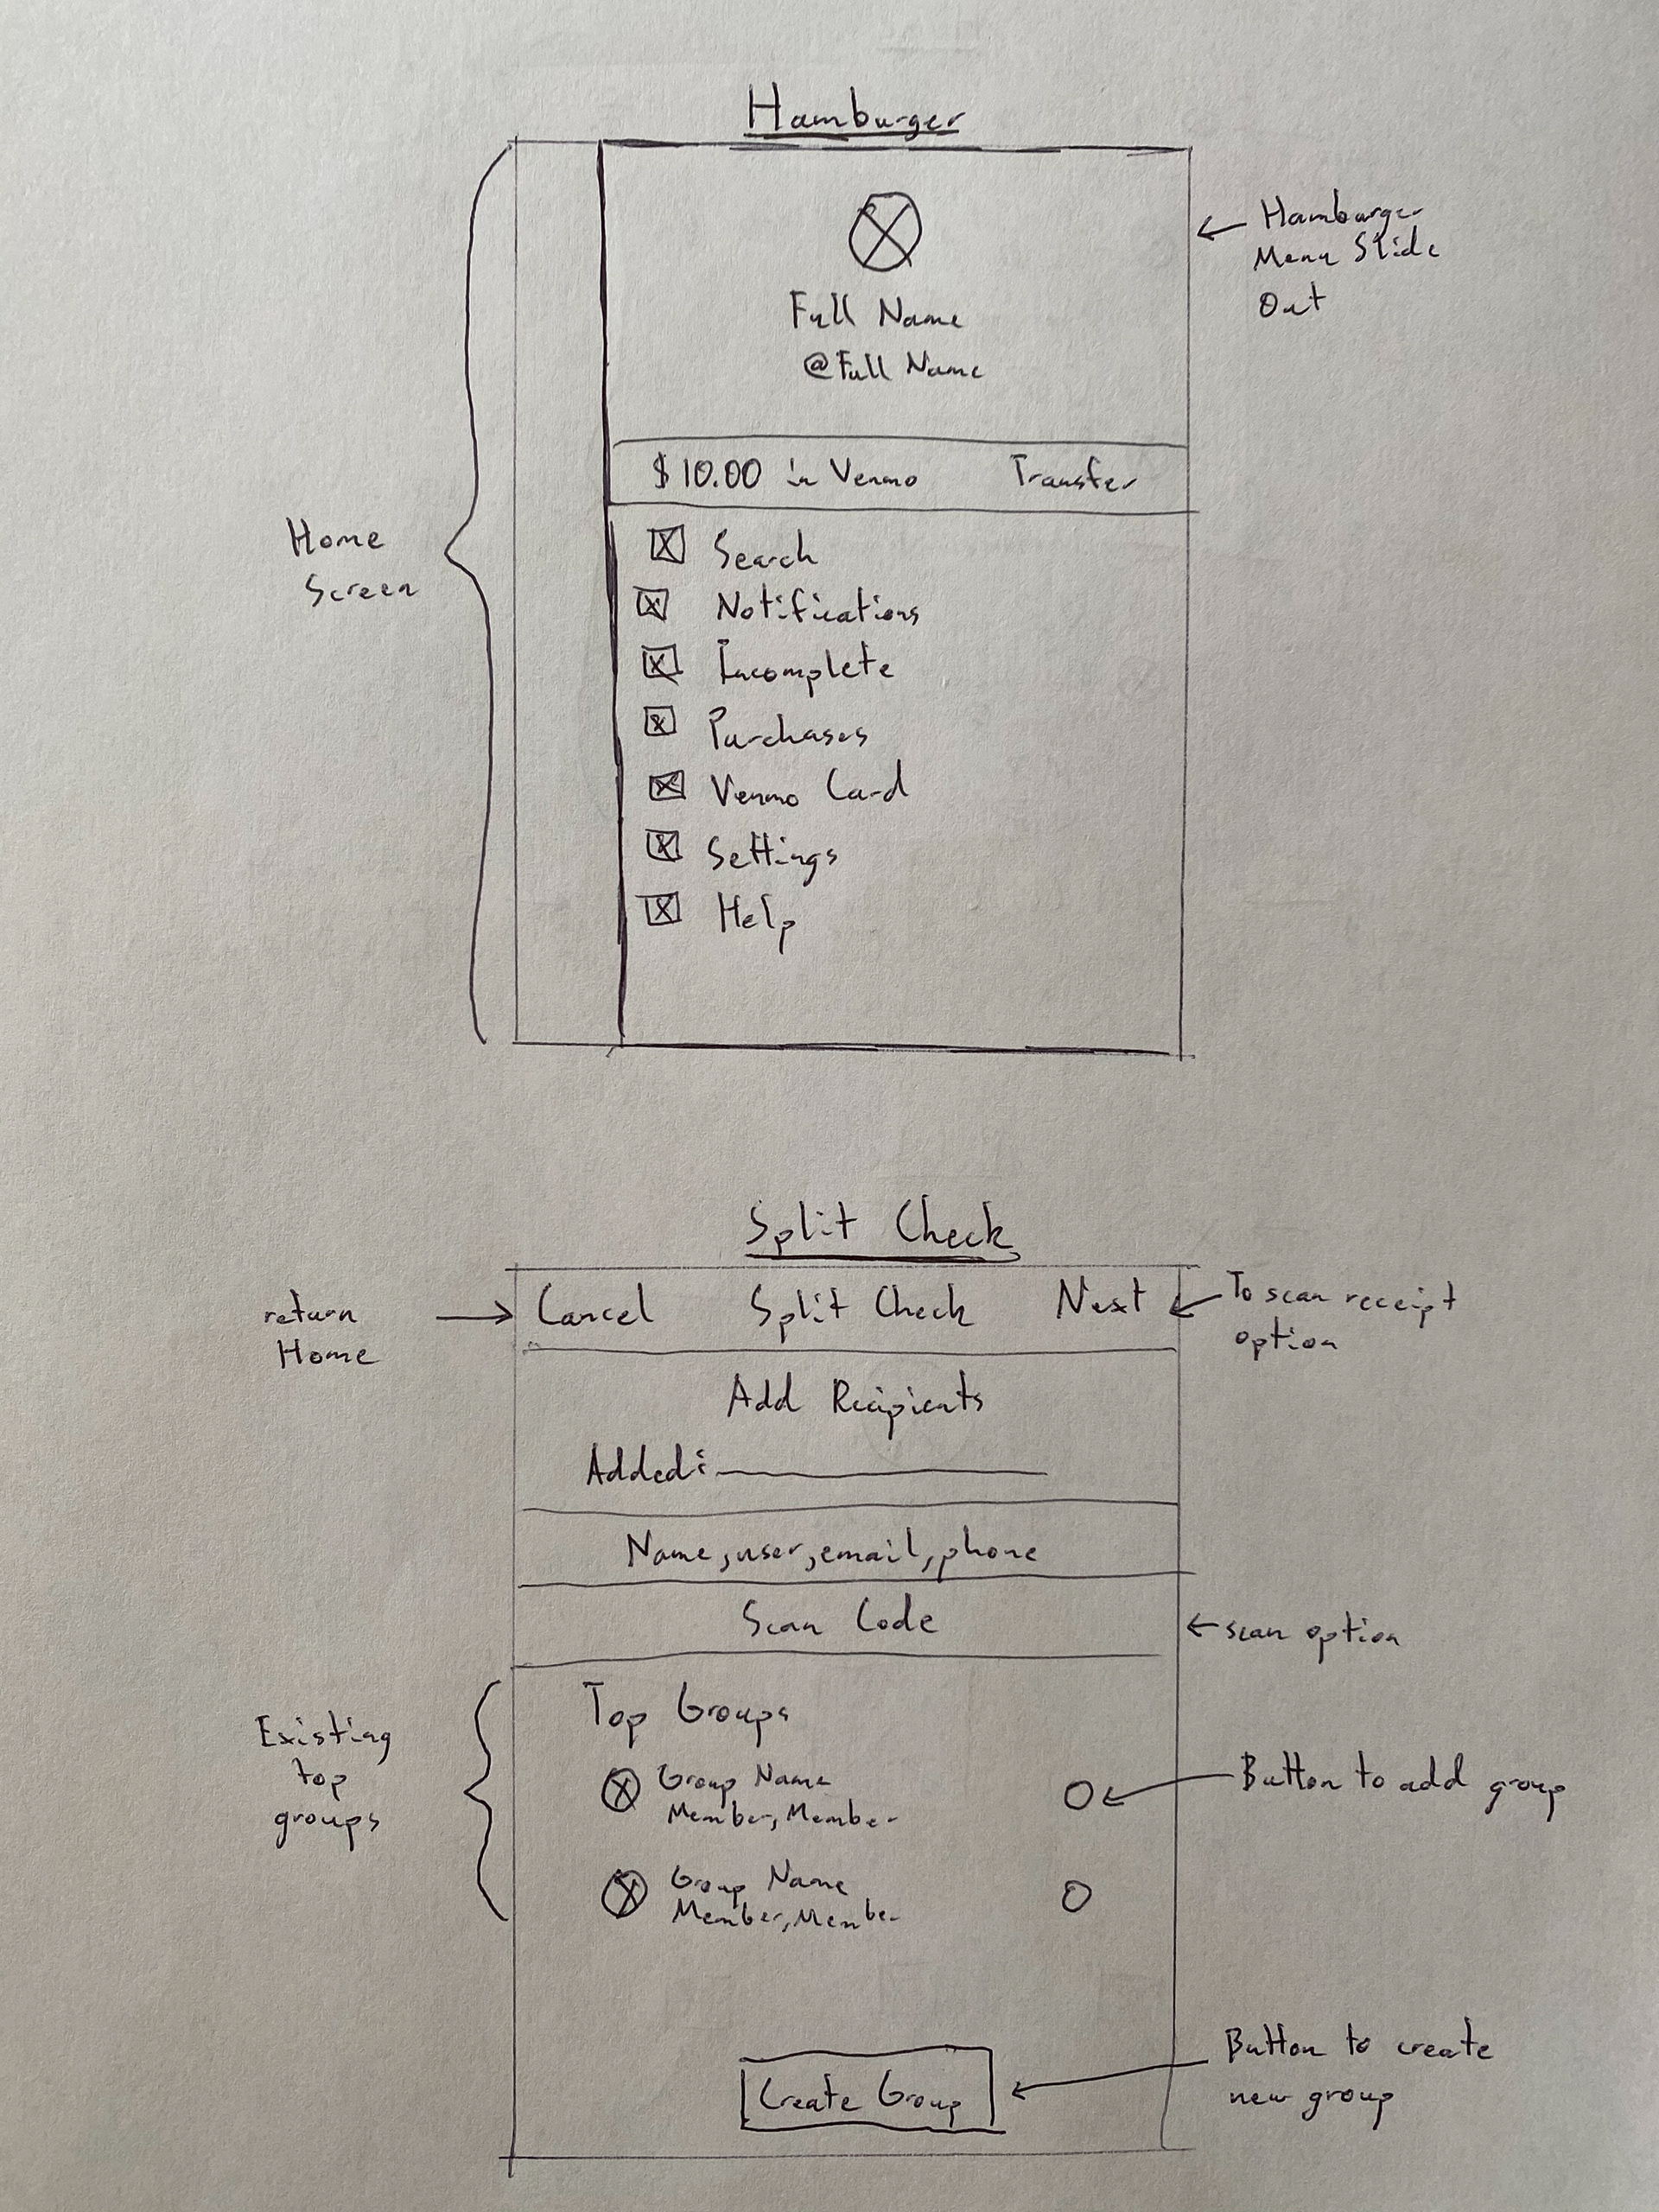 Hamburger
Hamburger
Menu Slide
Out
Full Name
@Full Name
$10.00 in Venmo Transfer
Home
Screen
Search
Notifications
Incomplete
Purchases
Venmo Card
Settings
Help
Split Check
return
Home
Cancel Split Check Next
To scan receipt
option
Add Recipients
Added:
Name, user, email, phone
Scan Code
scan option
Existing
top
groups
Top Groups
Group Name
Member, Member
Button to add group
Group Name
Member, Member
Create Group
Button to create
new group